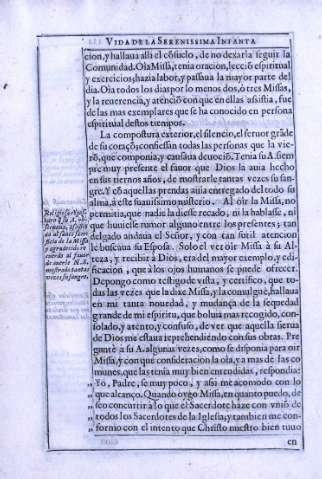 VIDA DE LA SERENISSIMA INFANTA
cion, y hallaua alli el cōsuelo, de no dexarla seguir la
Comunidad. Oìa Missa, tenia oracion, lecciō espiritual
y exercicios; hazia labor, y passaua la mayor parte del
dia. Oìa todos los dias por lo menos dos, ò tres Missas,
y la reuerencia, y atenciō con que en ellas asistia, fue
de las mas exemplares que se ha conocido en persona
espiritual destos tiempos.
La compostura exterior, el silencio, el feruor grāde
de su coraçō, confiessan todas las personas que la vie-
rō, que componia, y causaua deuociō. Tenia su A. siem
pre muy presente el fauor que Dios la auia hecho
en sus tiernos años, de mostrarle tantas vezes su san-
gre. Y cō aquellas prendas auia entregado del todo su
alma, à este suauissimo misterio. Al oîr la Missa, no
permitia, que nadie la diesse recado, ni la hablasse, ni
que huuiesse rumor alguno entre los presentes; tan
delgado andaua el Señor, y con tan sutil atencion
le buscaua su Esposa. Solo el ver oîr Missa à su Al-
teza, y recibir à Dios, era del mayor exemplo, y edi-
ficacion, que à los ojos humanos se puede ofrecer.
Depongo como testigo de vista, y certifico, que to-
das las vezes que la daxe Missa, y la comulguè, hallaua
en mi tanta nouedad, y mudança de la sequedad
grande de mi espiritu, que boluia mas recogido, con-
solado, y atento, y confuso, de ver que aquella sierua
de Dios me estaua reprehendiendo con sus obras. Pre
guntè a su A. algunas vezes, como se disponia para oîr
Missa, y con què consideracion la oìa, y a mas de las co
munes, que las tenia muy bien entendidas, respondia:
„ Yo, Padre, se muy poco, y assi me acomodo con lo
„ que alcanço. Quando oygo Missa, en quanto puedo, de
„ seo concurrir a lo que el Sacerdote haze con vniō de
„ todos los Sacerdotes de la Iglesia; y tambien me con-
„ formo con el intento que Christo nuestro bien tuuo
en